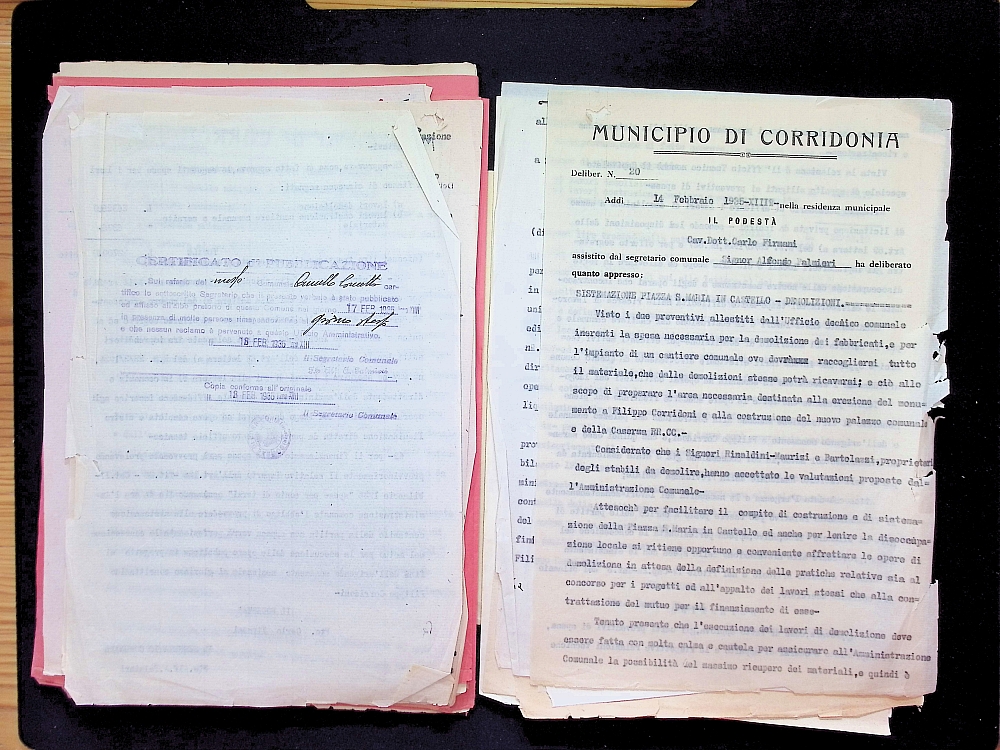 CERTIFICATO di PUBBLICAZIONE
Sul referto del messo Comunale Camillo cer-
tifico io sottoscritto Segretario che il presente verbale è stato pubblicato
17 FEB 1936 XIII
in presenza di molte persone giorno
e che nessun reclamo è pervenuto a questo Ufficio Amministrativo.
lì 18 FEB. 1936 XIII
Il Segretario Comunale
Copia conforme all'originale
lì 18 FEB. 1936 XIII
Il Segretario Comunale
MUNICIPIO DI CORRIDONIA
Deliber. N. 20
Addì 14 Febbraio 1935-XIII°-nella residenza municipale
IL PODESTÀ
Cav.Dott.Carlo Firmani
assistito dal segretario comunale Signor Alfonso Palmieri ha deliberato
quanto appresso:
SISTEMAZIONE PIAZZA S.MARIA IN CASTELLO - DEMOLIZIONI.
Visto i due preventivi allestiti dall'Ufficio tecnico comunale
inerenti la spesa necessaria per la demolizione dei fabbricati,e per
l'impianto di un cantiere comunale ove dovranno raccogliersi tutto
il materiale,che dalle demolizioni stesse potrà ricavarsi; e ciò allo
scopo di preparare l'area necessaria destinata alla erezione del monu-
mento a Filippo Corridoni e alla costruzione del nuovo palazzo comunale
e della Caserma RR.CC.-
Considerato che i Signori Rinaldini-Maurizi e Bartolazzi,proprietari
degli stabili da demolire,hanno accettato le valutazioni proposte dal-
l'Amministrazione Comunale-
Attesochè per facilitare il compito di costruzione e di sistema-
zione della Piazza S.Maria in Castello ed anche per lenire la disoccupa-
zione locale si ritiene opportuno e conveniente affrettare le opere di
demolizione in attesa della definizione delle pratiche relative sia al
concorso per i progetti ed all'appalto dei lavori stessi che alla con-
trattazione del mutuo per il finanziamento di esse-
Tenuto presente che l'esecuzione dei lavori di demolizione deve
essere fatta con molta calma e cautela per assicurare all'Amministrazione
Comunale la possibilità del massimo ricupero dei materiali,e quindi è